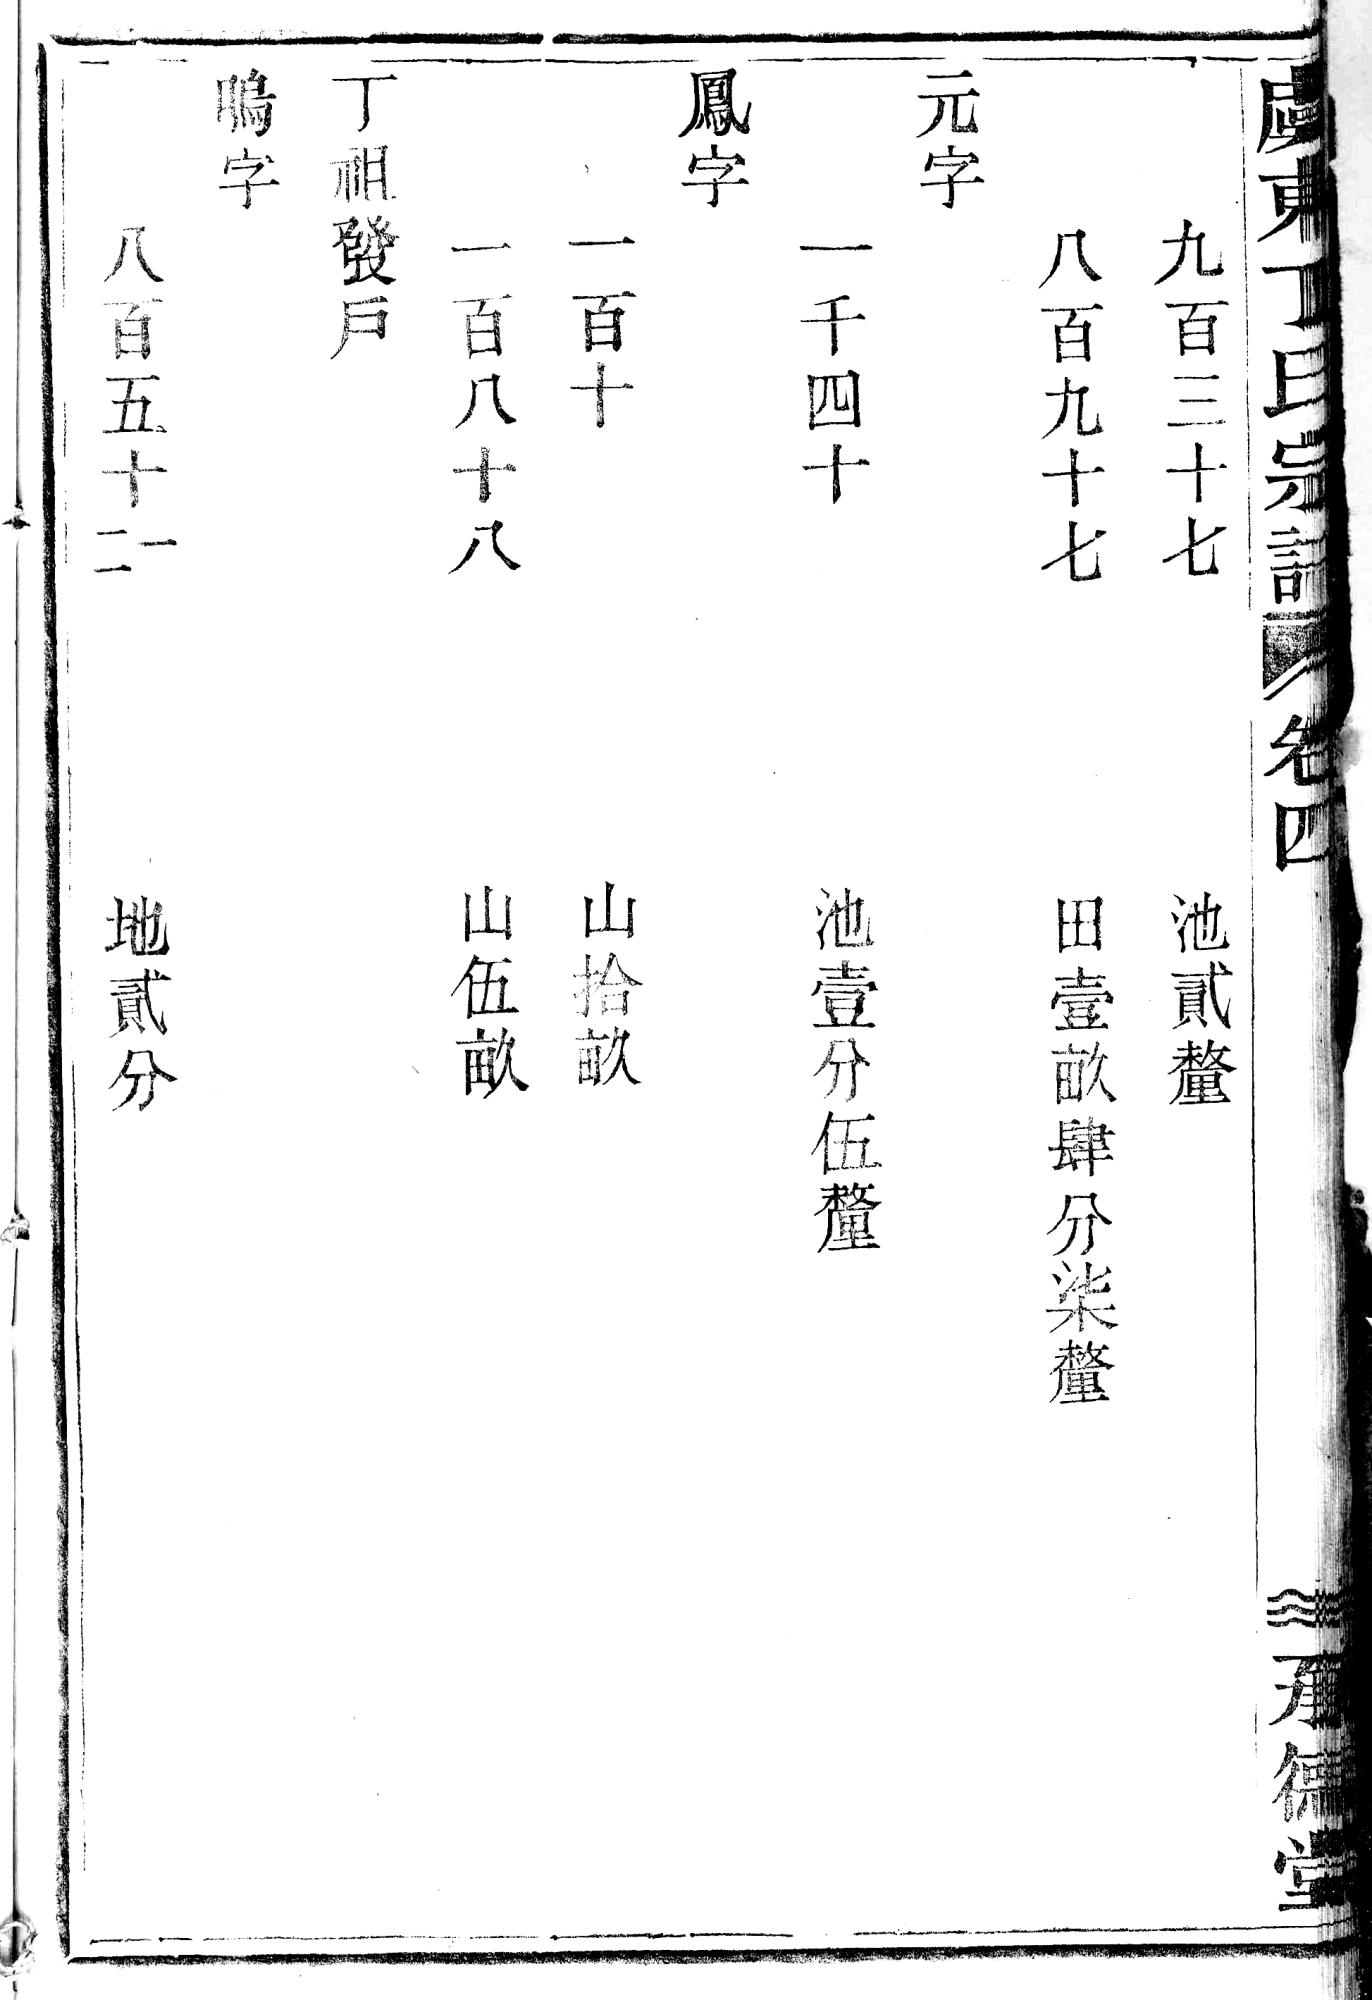 虞東丁氏宗譜 卷四 承德堂
九百三十七 池貳釐
八百九十七 田壹畝肆分柒釐
元字
一千四十 池壹分伍釐
鳳字
一百十 山拾畝
一百八十八 山伍畝
丁祖發戶
鳴字
八百五十一二 地貳分